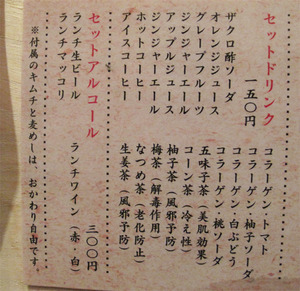 セットドリンク
一五〇円
ザクロ酢ソーダ
オレンジジュース
グレープフルーツ
ジンジャーエール
アップルジュース
ジンジャーエール
ホットコーヒー
アイスコーヒー
コラーゲン・トマト
コラーゲン・柚子ソーダ
コラーゲン・白ぶどう
コラーゲン・桃ソーダ
五味子茶(美肌効果)
コーン茶(冷え性)
柚子茶(風邪予防)
梅茶(解毒作用)
なつめ茶(老化防止)
生姜茶(風邪予防)
セットアルコール
三〇〇円
ランチ生ビール
ランチマッコリ
ランチワイン(赤・白)
※付属のキムチと麦めしは、おかわり自由です。